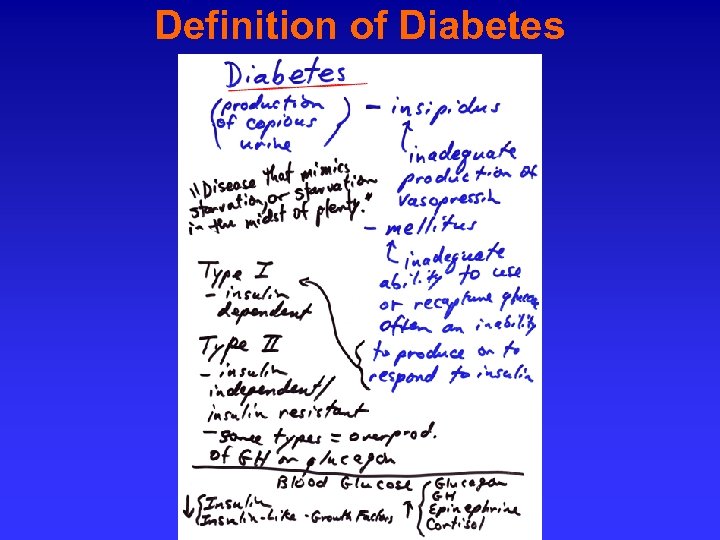 Definition of Diabetes
Diabetes
(production
of copious
urine)
- insipidus
inadequate
production of
vasopressin
"Disease that mimics
starvation, or starvation
in the midst of plenty."
- mellitus
inadequate
ability to use
or recapture glucose
often an inability
to produce or to
respond to insulin
Type I
- insulin
dependent
Type II
- insulin
independent/
insulin resistant
- some types = overprod.
of GH or glucagon
Blood Glucose
↓ Insulin
Insulin-Like-Growth Factors
↑ Glucagon
GH
Epinephrine
Cortisol